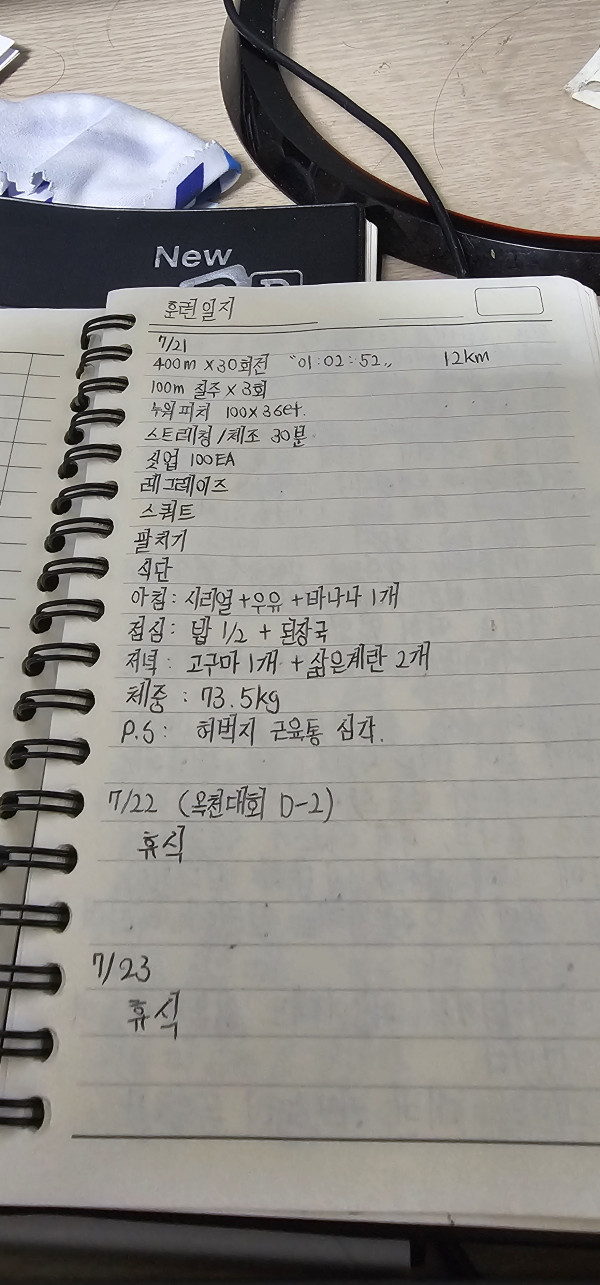 New
훈련일지
7/21
400m X30회전 "01:02:52" 12km
100m 질주 X 3회
누워피치 100X3set.
스트레칭/체조 30분
싯업 100EA
레그레이즈
스쿼트
팔치기
식단
아침: 시리얼+우유+바나나 1개
점심: 밥 1/2 + 된장국
저녁: 고구마 1개 +삶은계란 2개
체중 : 73.5kg
P.S: 허벅지 근육통 심각.
7/22 (옥천대회 D-2)
휴식
7/23
휴식